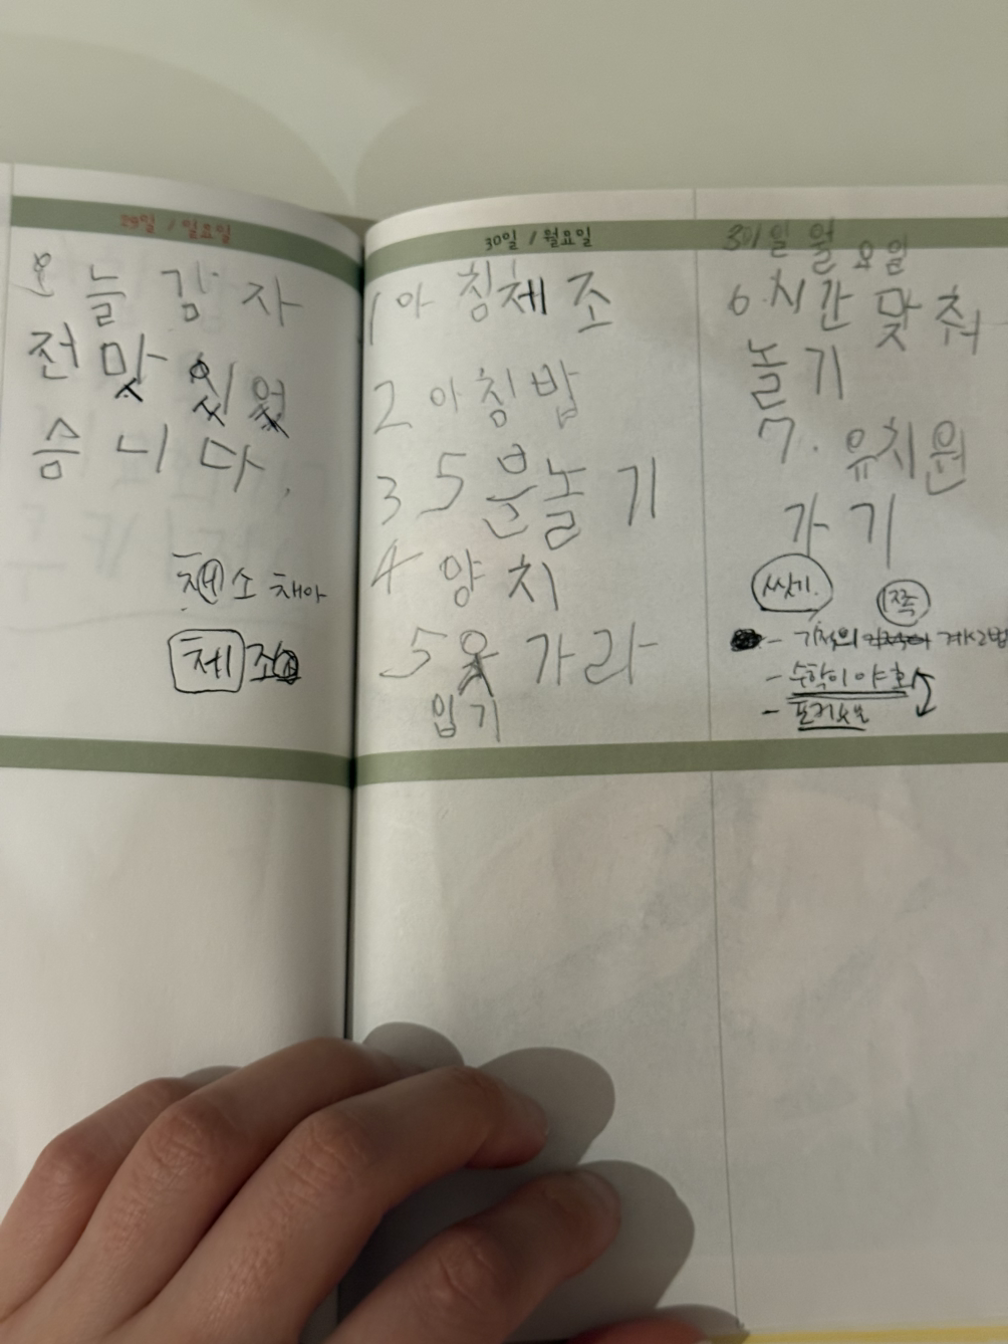 29일 / 일요일
오늘감자
전맛있었
습니다.
첸소 채아
체조
30일 / 월요일
1아침체조
2아침밥
3 5분놀기
4 양치
5옷가라
입기
31일 월요일
6.시간맞춰
놀기
7. 유치원
가기
씻기.
1쪽
- 기적의 계산법
- 수학이야호